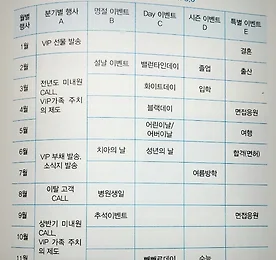 월별 행사
분기별 행사 A
명절 이벤트 B
Day 이벤트 C
시즌 이벤트 D
특별 이벤트 E
1월
VIP 선물 발송
결혼
2월
설날 이벤트
발런타인데이
졸업
출산
3월
전년도 미내원 CALL, VIP가족 주치의 제도
화이트데이
입학
4월
블랙데이
면접응원
5월
어린이날/
어버이날
여행
6월
VIP 부채 발송, 소식지 발송
치아의 날
성년의 날
합격(면허)
7월
여름방학
8월
이탈 고객 CALL
병원생일
9월
상반기 미내원 CALL, VIP 가족 주치의 제도
추석이벤트
면접응원
10월
11월
빼빼로데이
수능